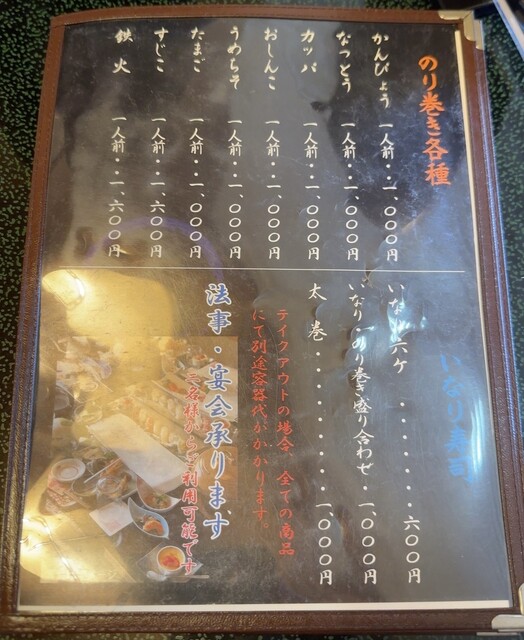 のり巻き各種
かんぴょう 一人前・・一、〇〇〇円
なっとう 一人前・・一、〇〇〇円
カッパ 一人前・・一、〇〇〇円
おしんこ 一人前・・一、〇〇〇円
うめちそ 一人前・・一、〇〇〇円
たまご 一人前・・一、〇〇〇円
すじこ 一人前・・一、六〇〇円
鉄火 一人前・・一、六〇〇円
いなり寿司
いなり 六ケ・・・・・・・六〇〇円
いなり・のり巻き盛り合わせ・一、〇〇〇円
太巻・・・・・・・・・一、〇〇〇円
テイクアウトの場合、全ての商品
にて別途容器代がかかります。
法事・宴会承ります
二名様からご利用可能です